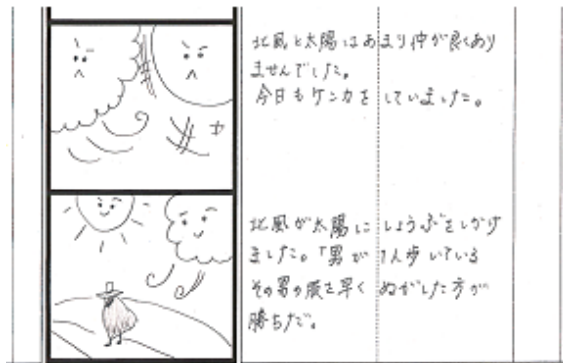 北風と太陽はあまり仲が良くあり
ませんでした。
今日もケンカをしていました。
北風が太陽にしょうぶをしかけ
ました。「男が1人歩いている
その男の服を早くぬがした方が
勝ちだ。